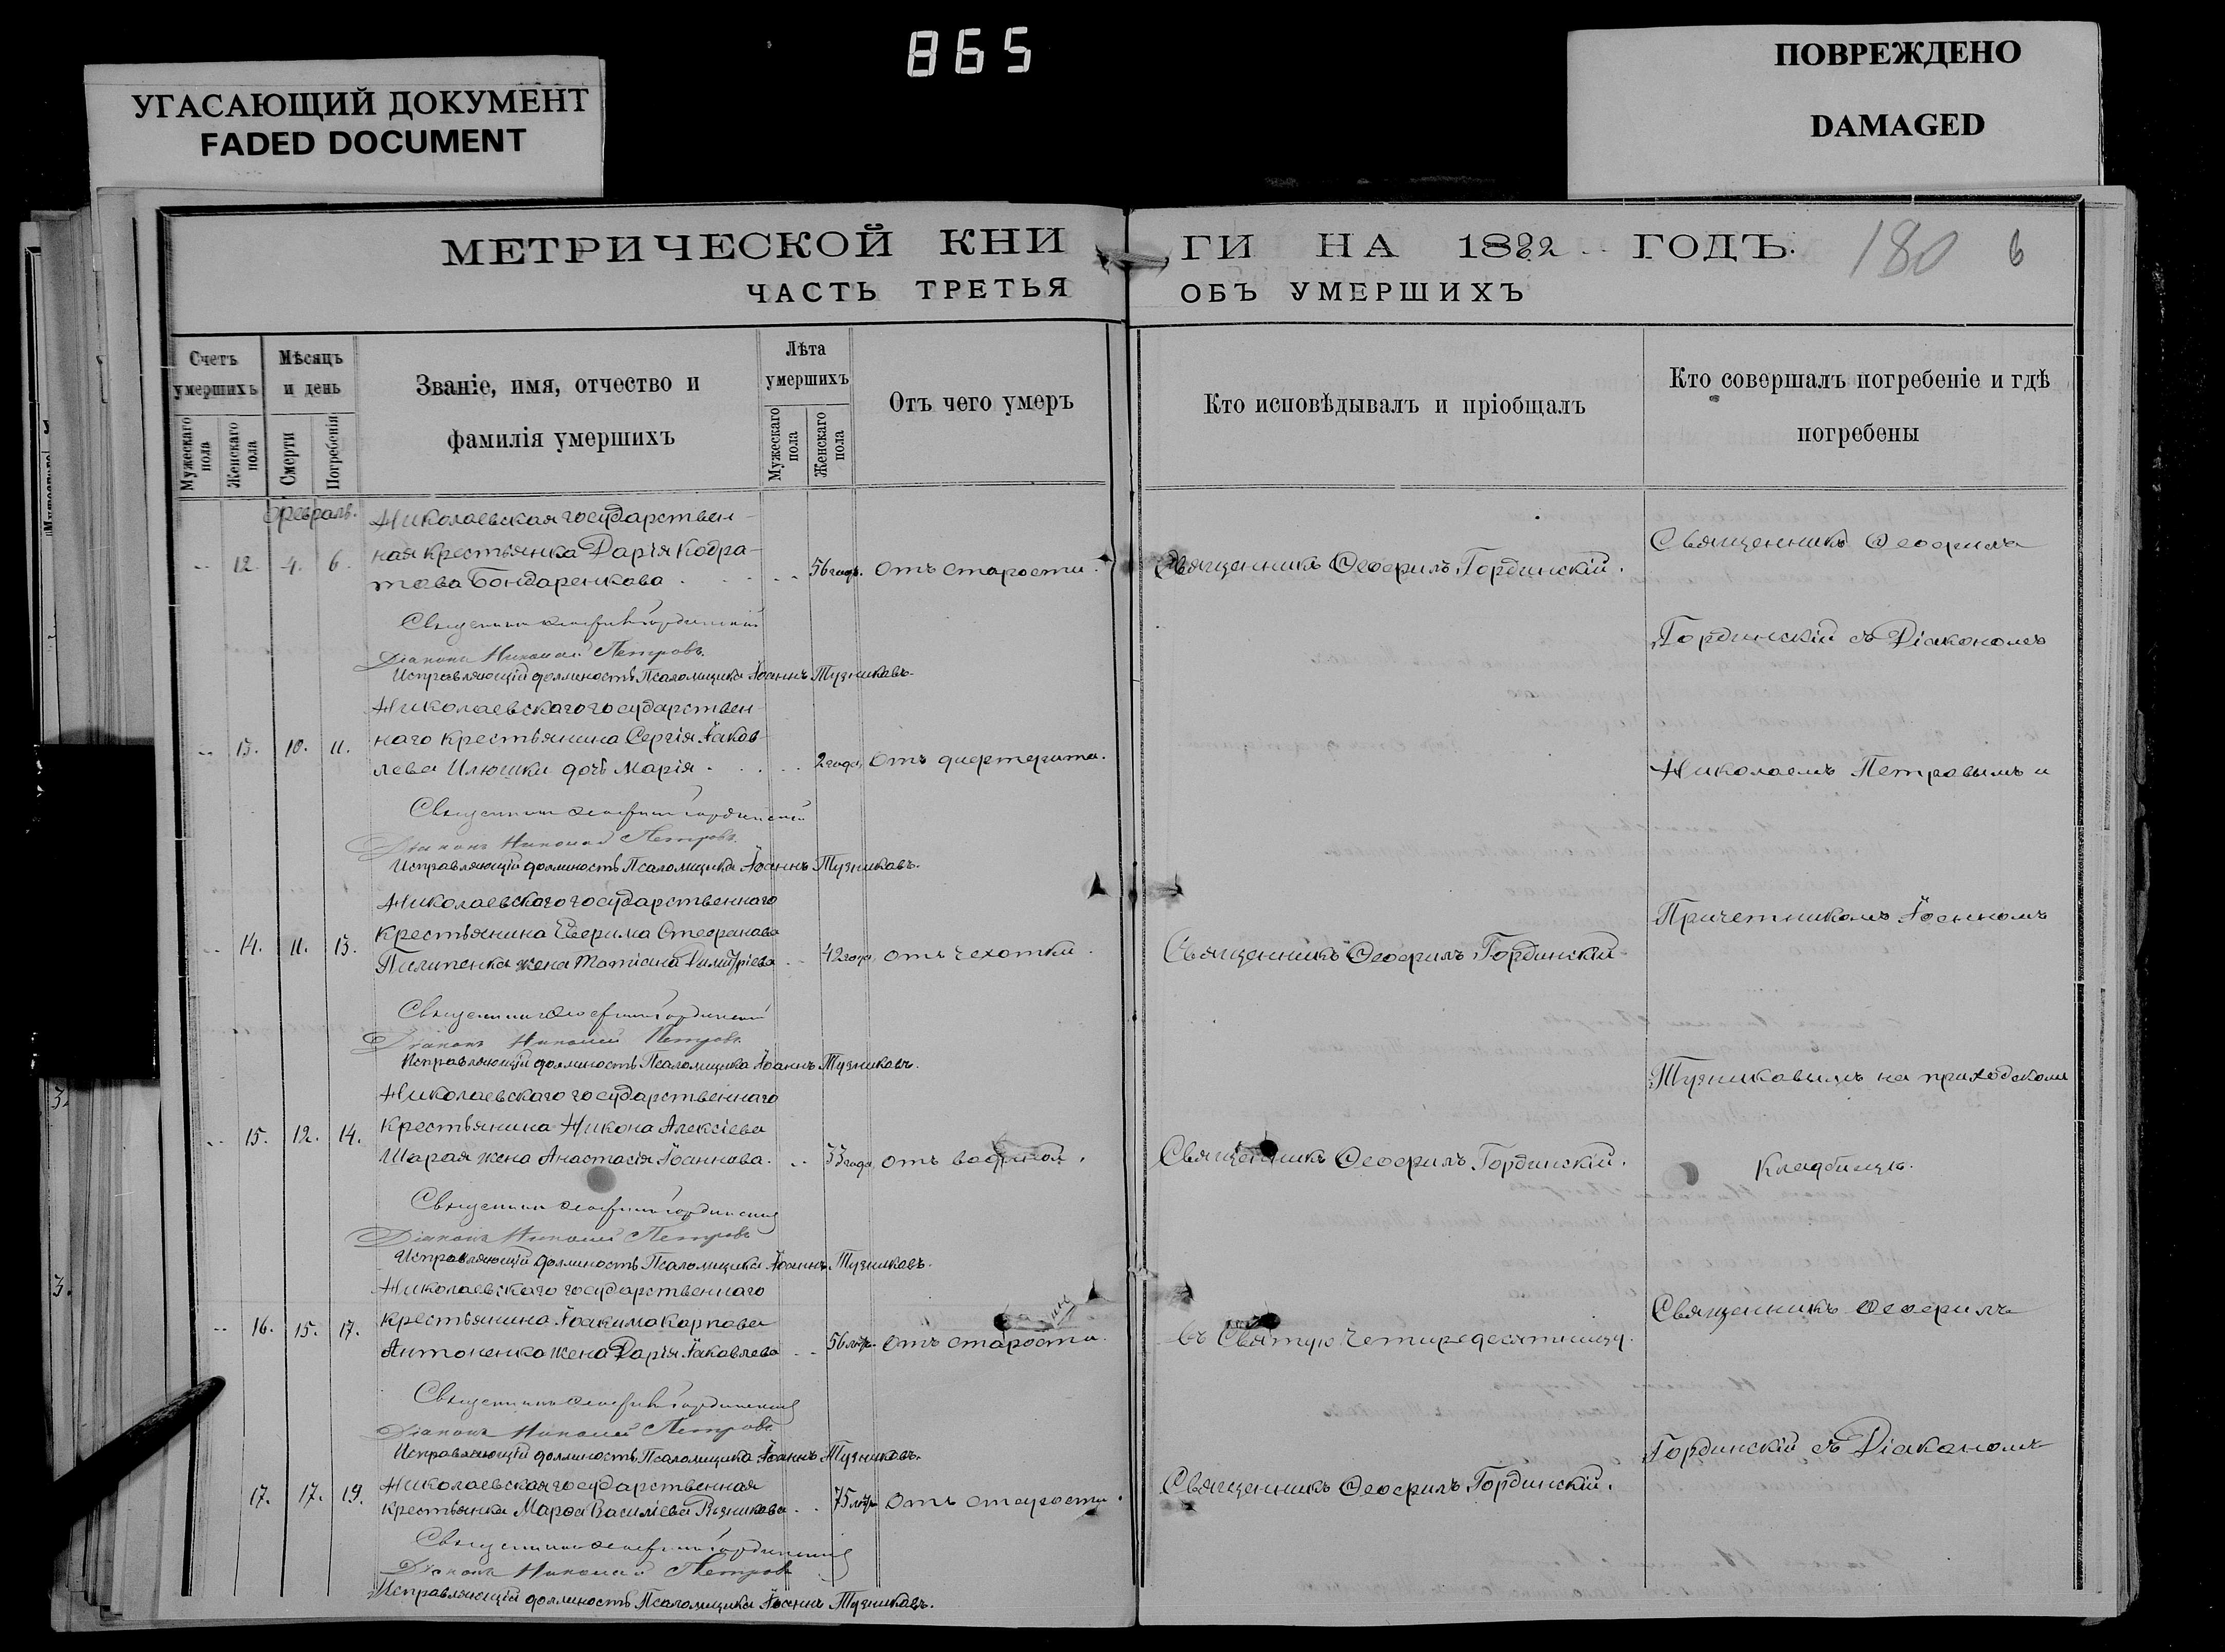 865
УГАСАЮЩИЙ ДОКУМЕНТ
FADED DOCUMENT
ПОВРЕЖДЕНО
DAMAGED
МЕТРИЧЕСКОЙ КНИ
ГИ НА 1882 ГОДЪ.
180 6
ЧАСТЬ ТРЕТЬЯ
ОБЪ УМЕРШИХЪ
Счетъ умершихъ
Мужескаго пола
Женскаго пола
Мѣсяцъ и день
Смерти
Погребенія
Званіе, имя, отчество и
фамилія умершихъ
Лѣта умершихъ
Мужескаго пола
Женскаго пола
Отъ чего умеръ
Кто исповѣдывалъ и пріобщалъ
Кто совершалъ погребеніе и гдѣ
погребены
Февраль.
Николаевская государствен-
12. 4. 6. ная крестьянка Дарія Кодра-
това Бондаренкова 56 годъ. Отъ старости. Священникъ Ѳеофилъ Гординскій.
Священникъ Ѳеофилъ Гординскій
Діаконъ Николай Петровъ.
Исправляющій должность Псаломщика Іоаннъ Тузниковъ.
Николаевскаго государствен-
13. 10. 11. наго крестьянина Сергія Іаков-
лева Илюшки дочь Марія 2 года, Отъ дифтерита.
Священникъ Ѳеофилъ Гординскій
Діаконъ Николай Петровъ.
Исправляющій должность Псаломщика Іоаннъ Тузниковъ.
Николаевскаго государственнаго
14. 11. 13. крестьянина Ефима Стефанова
Пилипенка жена Татіана Димитріева 42 года, отъ чехотки. Священникъ Ѳеофилъ Гординскій
Священникъ Ѳеофилъ Гординскій
Діаконъ Николай Петровъ.
Исправляющій должность Псаломщика Іоаннъ Тузниковъ.
Николаевскаго государственнаго
15. 12. 14. крестьянина Никона Алексіева
Шарая жена Анастасія Іоаннова. 33 года, отъ водяной. Священникъ Ѳеофилъ Гординскій.
Священникъ Ѳеофилъ Гординскій
Діаконъ Николай Петровъ
Исправляющій должность Псаломщика Іоаннъ Тузниковъ.
Николаевскаго государственнаго
16. 15. 17. крестьянина Іоакима Карпова
Антоненка жена Дарія Іаковлева 56 лѣтъ. Отъ старости. въ Святую Четиредесятницу.
Священникъ Ѳеофилъ Гординскій
Діаконъ Николай Петровъ
Исправляющій должность Псаломщика Іоаннъ Тузниковъ.
17. 17. 19. Николаевская государственная
крестьянка Марѳа Василіева 75 лѣтъ Отъ старости. Священникъ Ѳеофилъ Гординскій.
Священникъ Ѳеофилъ Гординскій
Діаконъ Николай Петровъ
Исправляющій должность Псаломщика Іоаннъ Тузниковъ.
Священникъ Ѳеофилъ
Гординскій съ Діакономъ
Николаемъ Петровымъ и
Причетникомъ Іоанномъ
Тузниковымъ на приходскомъ
Кладбищѣ.
Священникъ Ѳеофилъ
Гординскій съ Діакономъ